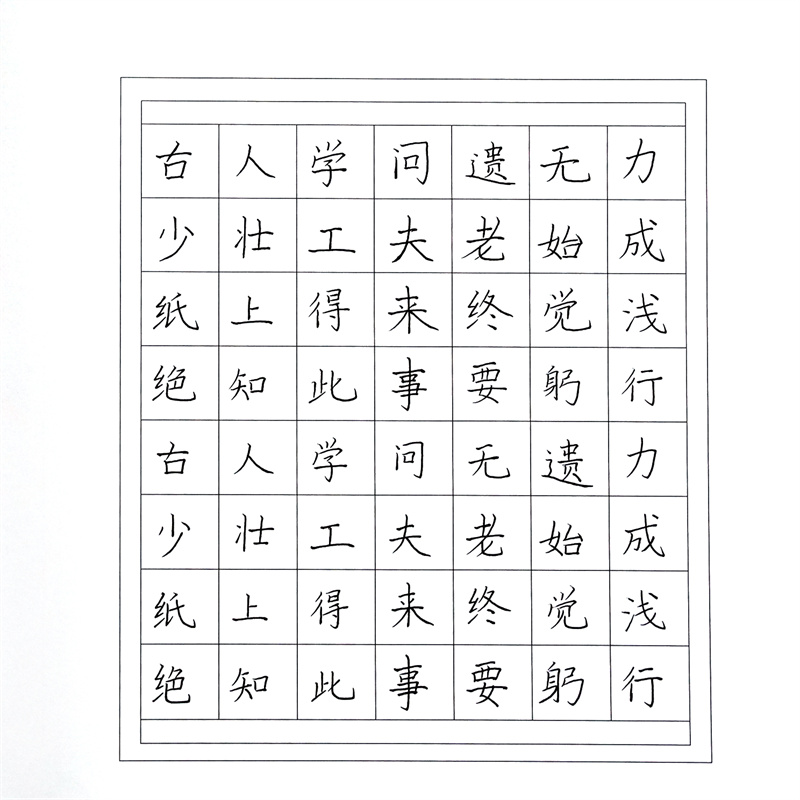 古人学问遗无力
少壮工夫老始成
纸上得来终觉浅
绝知此事要躬行
古人学问无遗力
少壮工夫老始成
纸上得来终觉浅
绝知此事要躬行